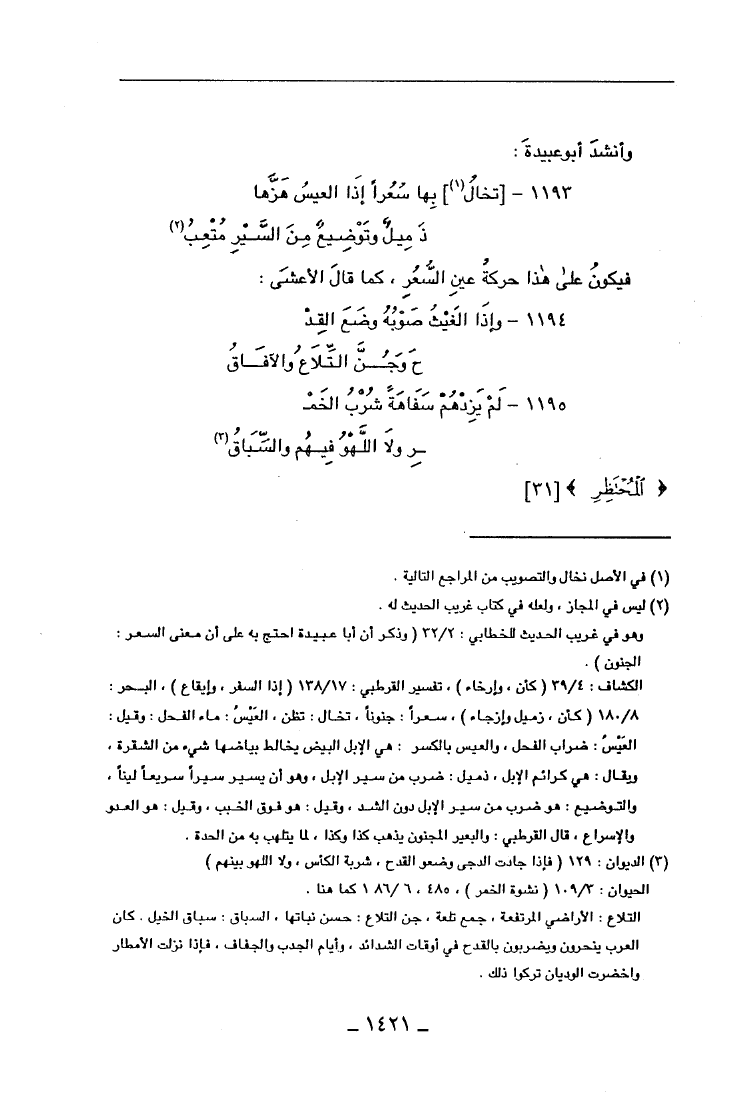 وأنشدَ أبوعبيدةَ :
١١٩٣ - [تخالُ(١)] بِها سُعُراً إذَا العيسُ هَزَّها
ذَمِيلٌ وتَوْضِيعٌ مِنَ السَّيْرِ مُتْعِبُ(٢)
فيكونُ علىٰ هٰذا حركةُ عينِ السُّعُرِ ، كما قالَ الأعشَى :
١١٩٤ - وإذَا الغَيْثُ صَوْبُهُ وضَعَ القِدْ
حَ وَجُــنَّ التِّـلَاعُ والآفَــاقُ
١١٩٥ - لَمْ يَزِدْهُمْ سَفَاهَةً شُرْبُ الخَمْـ
ـرِ ولَا اللَّـهْوُ فِيـهُم والسِّبَاقُ(٣)
﴿ ٱلْمُحْتَظِرِ ﴾ [٣١]
(١) في الأصل نخال والتصويب من المراجع التالية .
(٢) ليس في المجاز ، ولعله في كتاب غريب الحديث له .
وهو في غريب الحديث للخطابي : ٣٢/٢ ( وذكر أن أبا عبيدة احتج به على أن معنى السعر :
الجنون ) .
الكشاف : ٣٩/٤ ( كأن ، وإرخاء ) ، تفسير القرطبي : ١٣٨/١٧ ( إذا السفر ، وإيقاع ) ، البـحر :
١٨٠/٨ ( كأن ، زميل وإزجاء ) ، سعـراً : جنوناً ، تخـال : تظن ، العَيْسُ : مـاء الفحـل : وقيل :
العَيْسُ : ضراب الفحل ، والعيس بالكسر : هي الإبل البيض يخالط بياضها شيء من الشقرة ،
ويقال : هي كرائم الإبل ، ذميل : ضرب من سير الإبل ، وهو أن يـسير سيـراً سريعـاً ليناً ،
والتـوضيع : هو ضرب من سير الإبل دون الشد ، وقيل : هو فوق الخبب ، وقيل : هو العدو
والإسراع ، قال القرطبي : والبعير المجنون يذهب كذا وكذا ، لما يتلهب به من الحدة .
(٣) الديوان : ١٢٩ ( فإذا جادت الدجى وضعو القدح ، شربة الكأس ، ولا اللهو بينهم )
الحيوان : ١٠٩/٣ ( نشوة الخمر ) ، ٤٨٥ ، ٦ /١٨٦ كما هنا .
التلاع : الأراضي المرتفعة ، جمع تلعة ، جن التلاع : حسن نباتها ، السباق : سباق الخيل . كان
العرب ينحرون ويضربون بالقدح في أوقات الشدائد ، وأيام الجدب والجفاف ، فإذا نزلت الأمطار
واخضرت الوديان تركوا ذلك .
ـ ١٤٢١ ـ